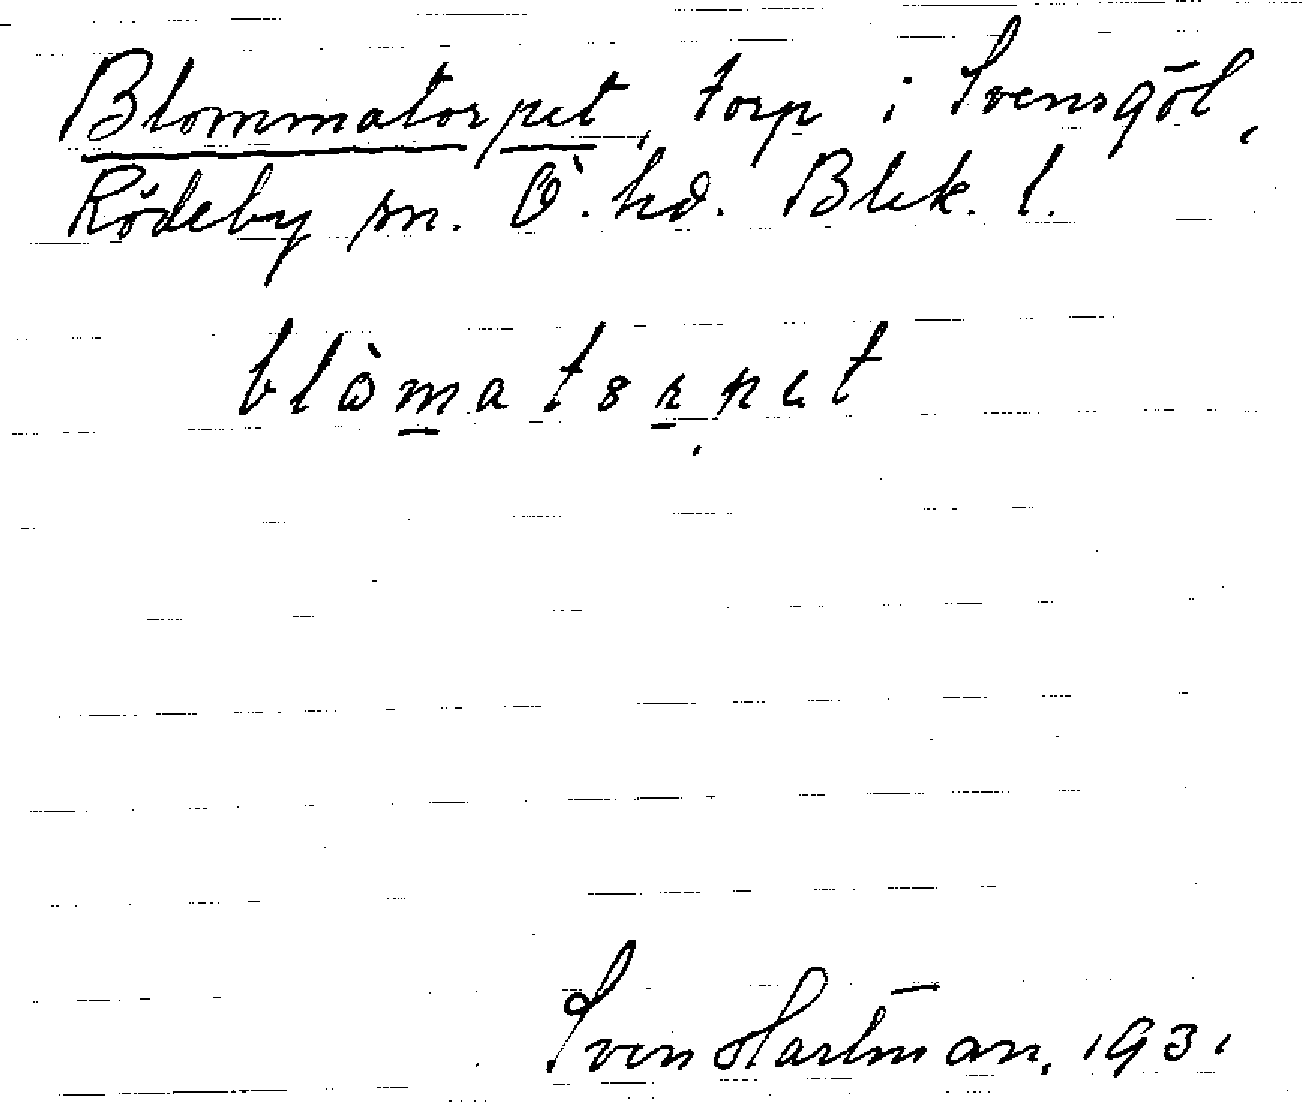 Blommatorpet, torp i Svensgöl,
Rödeby sn. Ö. hd. Blek. l.
blòmatorpet
Sven Hartman, 1931